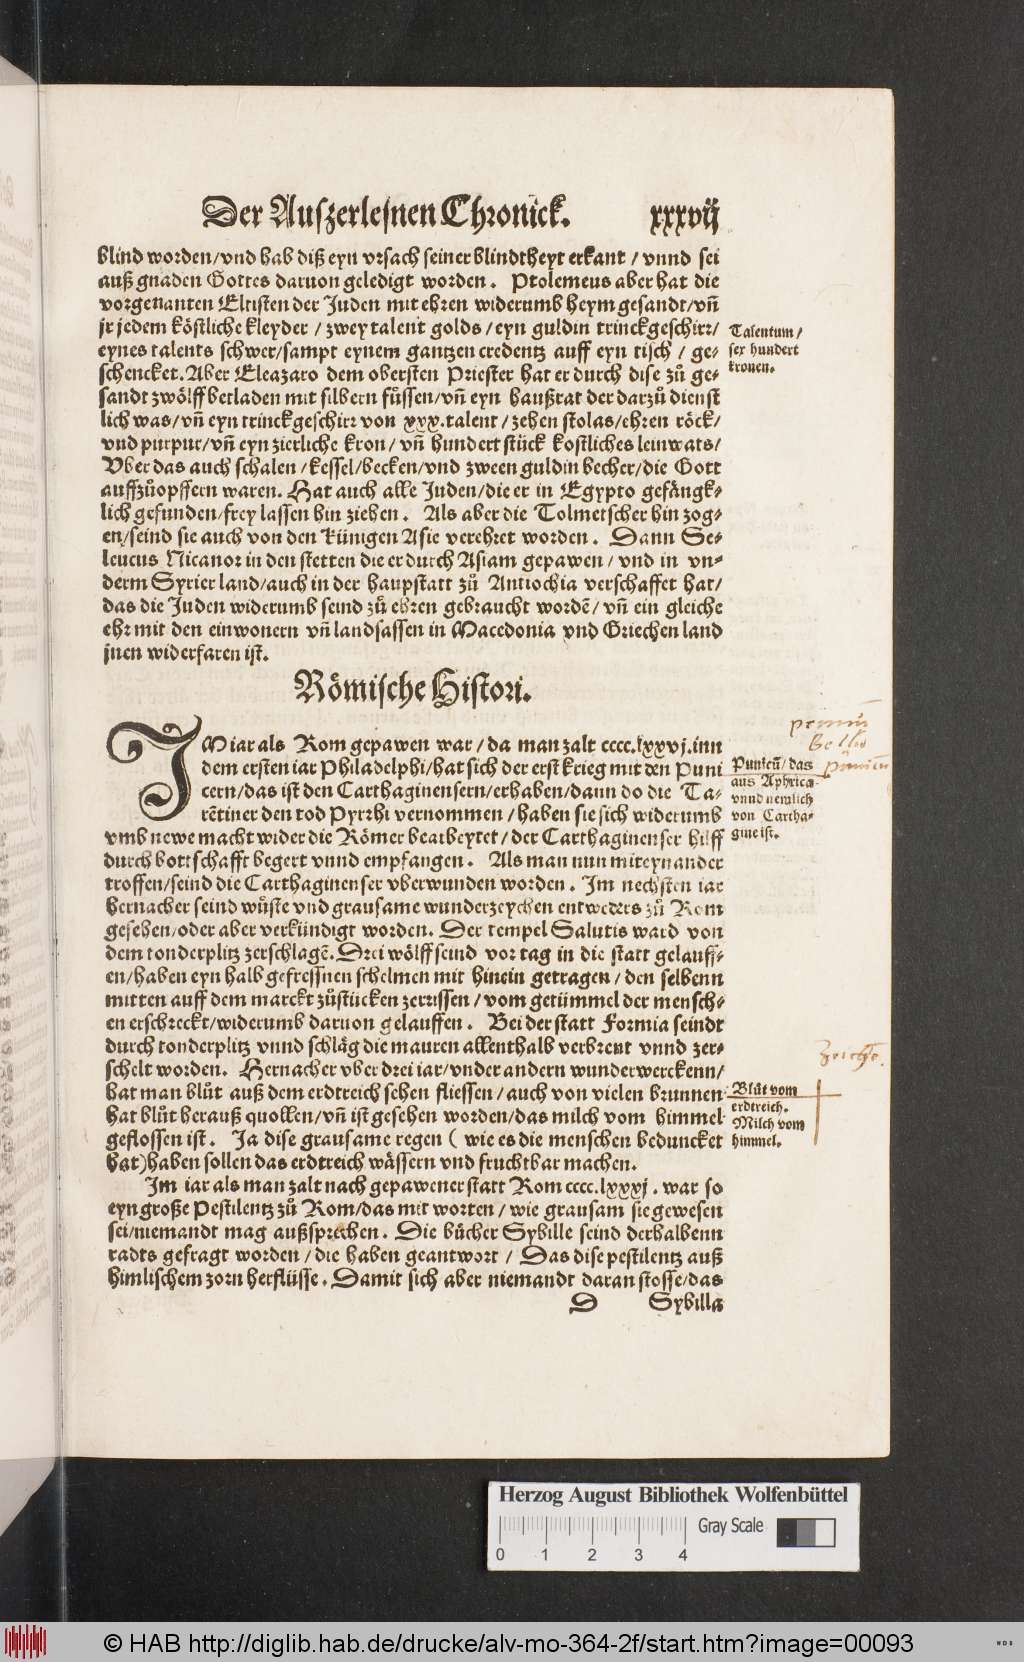 Der Auszerlesnen Chronick. xxxvij
blind worden/vnd hab diß eyn vrsach seiner blindtheyt erkant/vnnd sei
auß gnaden Gottes daruon geledigt worden. Ptolemeus aber hat die
vorgenanten Eltisten der Juden mit ehren widerumb heym gesandt/vn̄
jr jedem köstliche kleyder/zwey talent golds/eyn guldin trinckgeschirr/
eynes talents schwer/sampt eynem gantzen credentz auff eyn tisch/ge⸗
schencket. Aber Eleazaro dem obersten Priester hat er durch dise zů ge⸗
sandt zwölff betladen mit silbern füssen/vn̄ eyn haußrat der darzů dienst
lich was/vn̄ eyn trinckgeschirr von xxx. talent/zehen stolas/ehren röck/
vnd purpur/vn̄ eyn zierliche kron/vn̄ hundert stück kostliches leinwats/
Vber das auch schalen/kessel/becken/vnd zween guldin becher/die Gott
auffzůopffern waren. Hat auch alle Juden/die er in Egypto gefängk⸗
lich gefunden/frey lassen hin ziehen. Als aber die Tolmetscher hin zog⸗
en/seind sie auch von den künigen Asie verehret worden. Dann Se⸗
leucus Nicanor in den stetten die er durch Asiam gepawen/vnd in vn⸗
derm Syrier land/auch in der haupstatt zů Antiochia verschaffet hat/
das die Juden widerumb seind zů ehren gebraucht wordē/vn̄ ein gleiche
ehr mit den einwonern vn̄ landsassen in Macedonia vnd Griechen land
jnen widerfaren ist.
Talentum/
sex hundert
kronen.
Römische Histori.
IM iar als Rom gepawen war/da man zalt cccc.lxxvj. inn
dem ersten iar Philadelphi/hat sich der erst krieg mit den Puni
cern/das ist den Carthaginensern/erhaben/dann do die Ta⸗
rētiner den tod Pyrrhi vernommen/haben sie sich widerumb
vmb newe macht wider die Römer bearbeytet/der Carthaginenser hilff
durch bottschafft begert vnnd empfangen. Als man nun miteynander
troffen/seind die Carthaginenser vberwunden worden. Im nechsten iar
hernacher seind wůste vnd grausame wunderzeychen entweders zů Rom
gesehen/oder aber verkündigt worden. Der tempel Salutis ward von
dem tonderplitz zerschlagē. Drei wölff seind vor tag in die statt gelauff⸗
en/haben eyn halb gefressnen schelmen mit hinein getragen/den selbenn
mitten auff dem marckt zůstücken zerrissen/vom getümmel der mensch⸗
en erschreckt/widerumb daruon gelauffen. Bei der statt Formia seindt
durch tonderplitz vnnd schläg die mauren allenthalb verbrent vnnd zer⸗
schelt worden. Hernacher vber drei iar/vnder andern wunderwerckenn/
hat man blůt auß dem erdtreich sehen fliessen/auch von vielen brunnen
hat blůt herauß quollen/vn̄ ist gesehen worden/das milch vom himmel
geflossen ist. Ja dise grausame regen (wie es die menschen beduncket
hat) haben sollen das erdtreich wässern vnd fruchtbar machen.
Im iar als man zalt nach gepawener statt Rom cccc.lxxxj. war so
eyn große Pestilentz zů Rom/das mit worten/wie grausam sie gewesen
sei/niemandt mag außsprechen. Die bücher Sybille seind derhalbenn
radts gefragt worden/die haben geantwort/Das dise pestilentz auß
himlischem zorn herflüsse. Damit sich aber niemandt daran stosse/das
D Sybilla
Bello
Punicū/das
aus Aphrica
vnnd nemlich
von Cartha⸗
gine ist.
Blůt vom
erdtreich.
Milch vom
himmel.
Herzog August Bibliothek Wolfenbüttel
Gray Scale
0 1 2 3 4
© HAB http://diglib.hab.de/drucke/alv-mo-364-2f/start.htm?image=00093